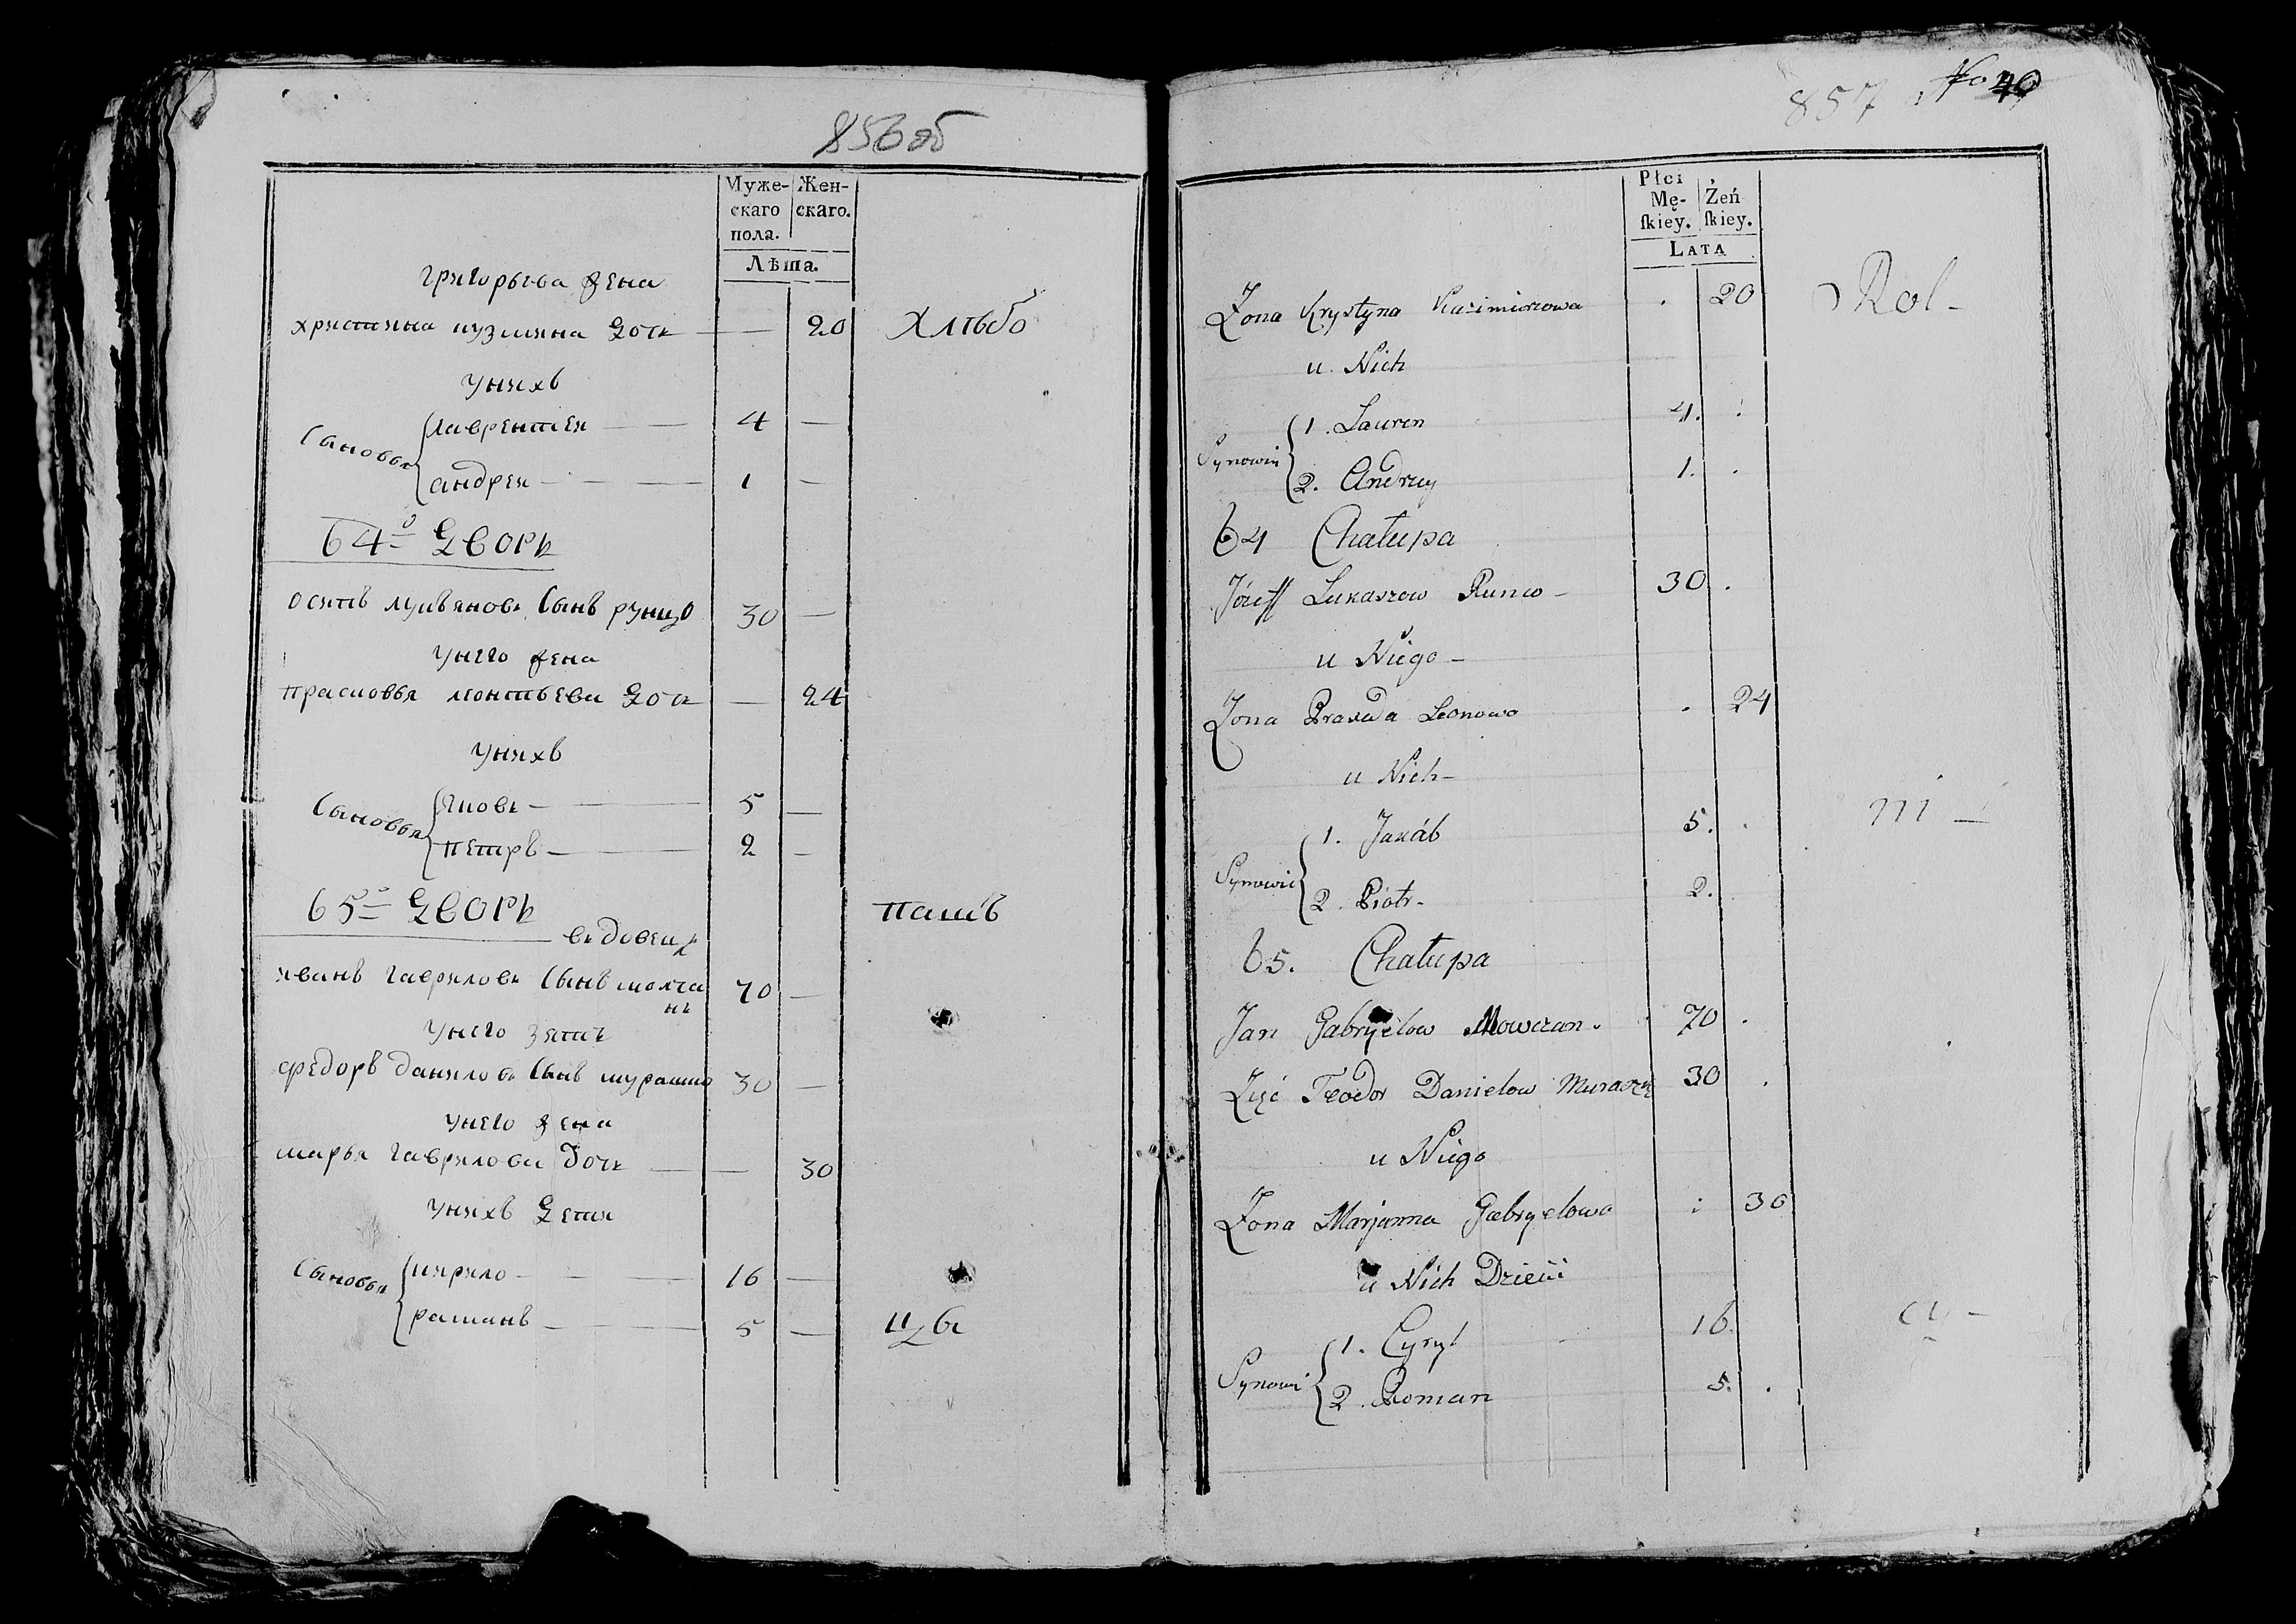 856 об
Муже-
скаго
пола.
Жен-
скаго.
Лѣта.
григорьева жена
христина кузмина дочь — — 20 Хлѣбо
у нихъ
Сыновья
лаврентей — 4 —
андрей — 1 —
64й дворъ
осипъ лукьяновъ сынъ рунцо 30 —
у него жена
прасковья леонтьева дочь — 24
у нихъ
Сыновья
яковъ — 5 —
петръ — 2 —
65й дворъ
пашъ
въдовецъ
иванъ гавриловъ сынъ молча
нъ 70 —
у него зять
федоръ даниловъ сынъ мурашко 30 —
у него жена
марья гаврилова дочь — — 30
у нихъ дети
Сыновья
кирило — 16 —
романъ — 5 —
цы
857 No 40
Płci
Mę-
ſkiey.
Żeń
ſkiey.
LATA
Żona Krystyna Kazimierzowa . 20 Rol-
u Nich
Synowie
1. Lauren 4. .
2. Andrzey 1. .
64 Chałupa
Józeff Łukaszow Runco - 30 .
u Niego -
Żona Praxeda Leonowa . 24
u Nich -
ni -
Synowie
1. Jakób 5. .
2. Piotr - 2.
65. Chałupa
Jan Gabryelow Mowczan . 70 .
Zięć Teodor Danielow Muraszk 30 .
u Niego
Żona Marjanna Gabryelowa . 30
u Nich Dzieci
cy -
Synowi
1. Cyryl 16.
2. Roman 5. .